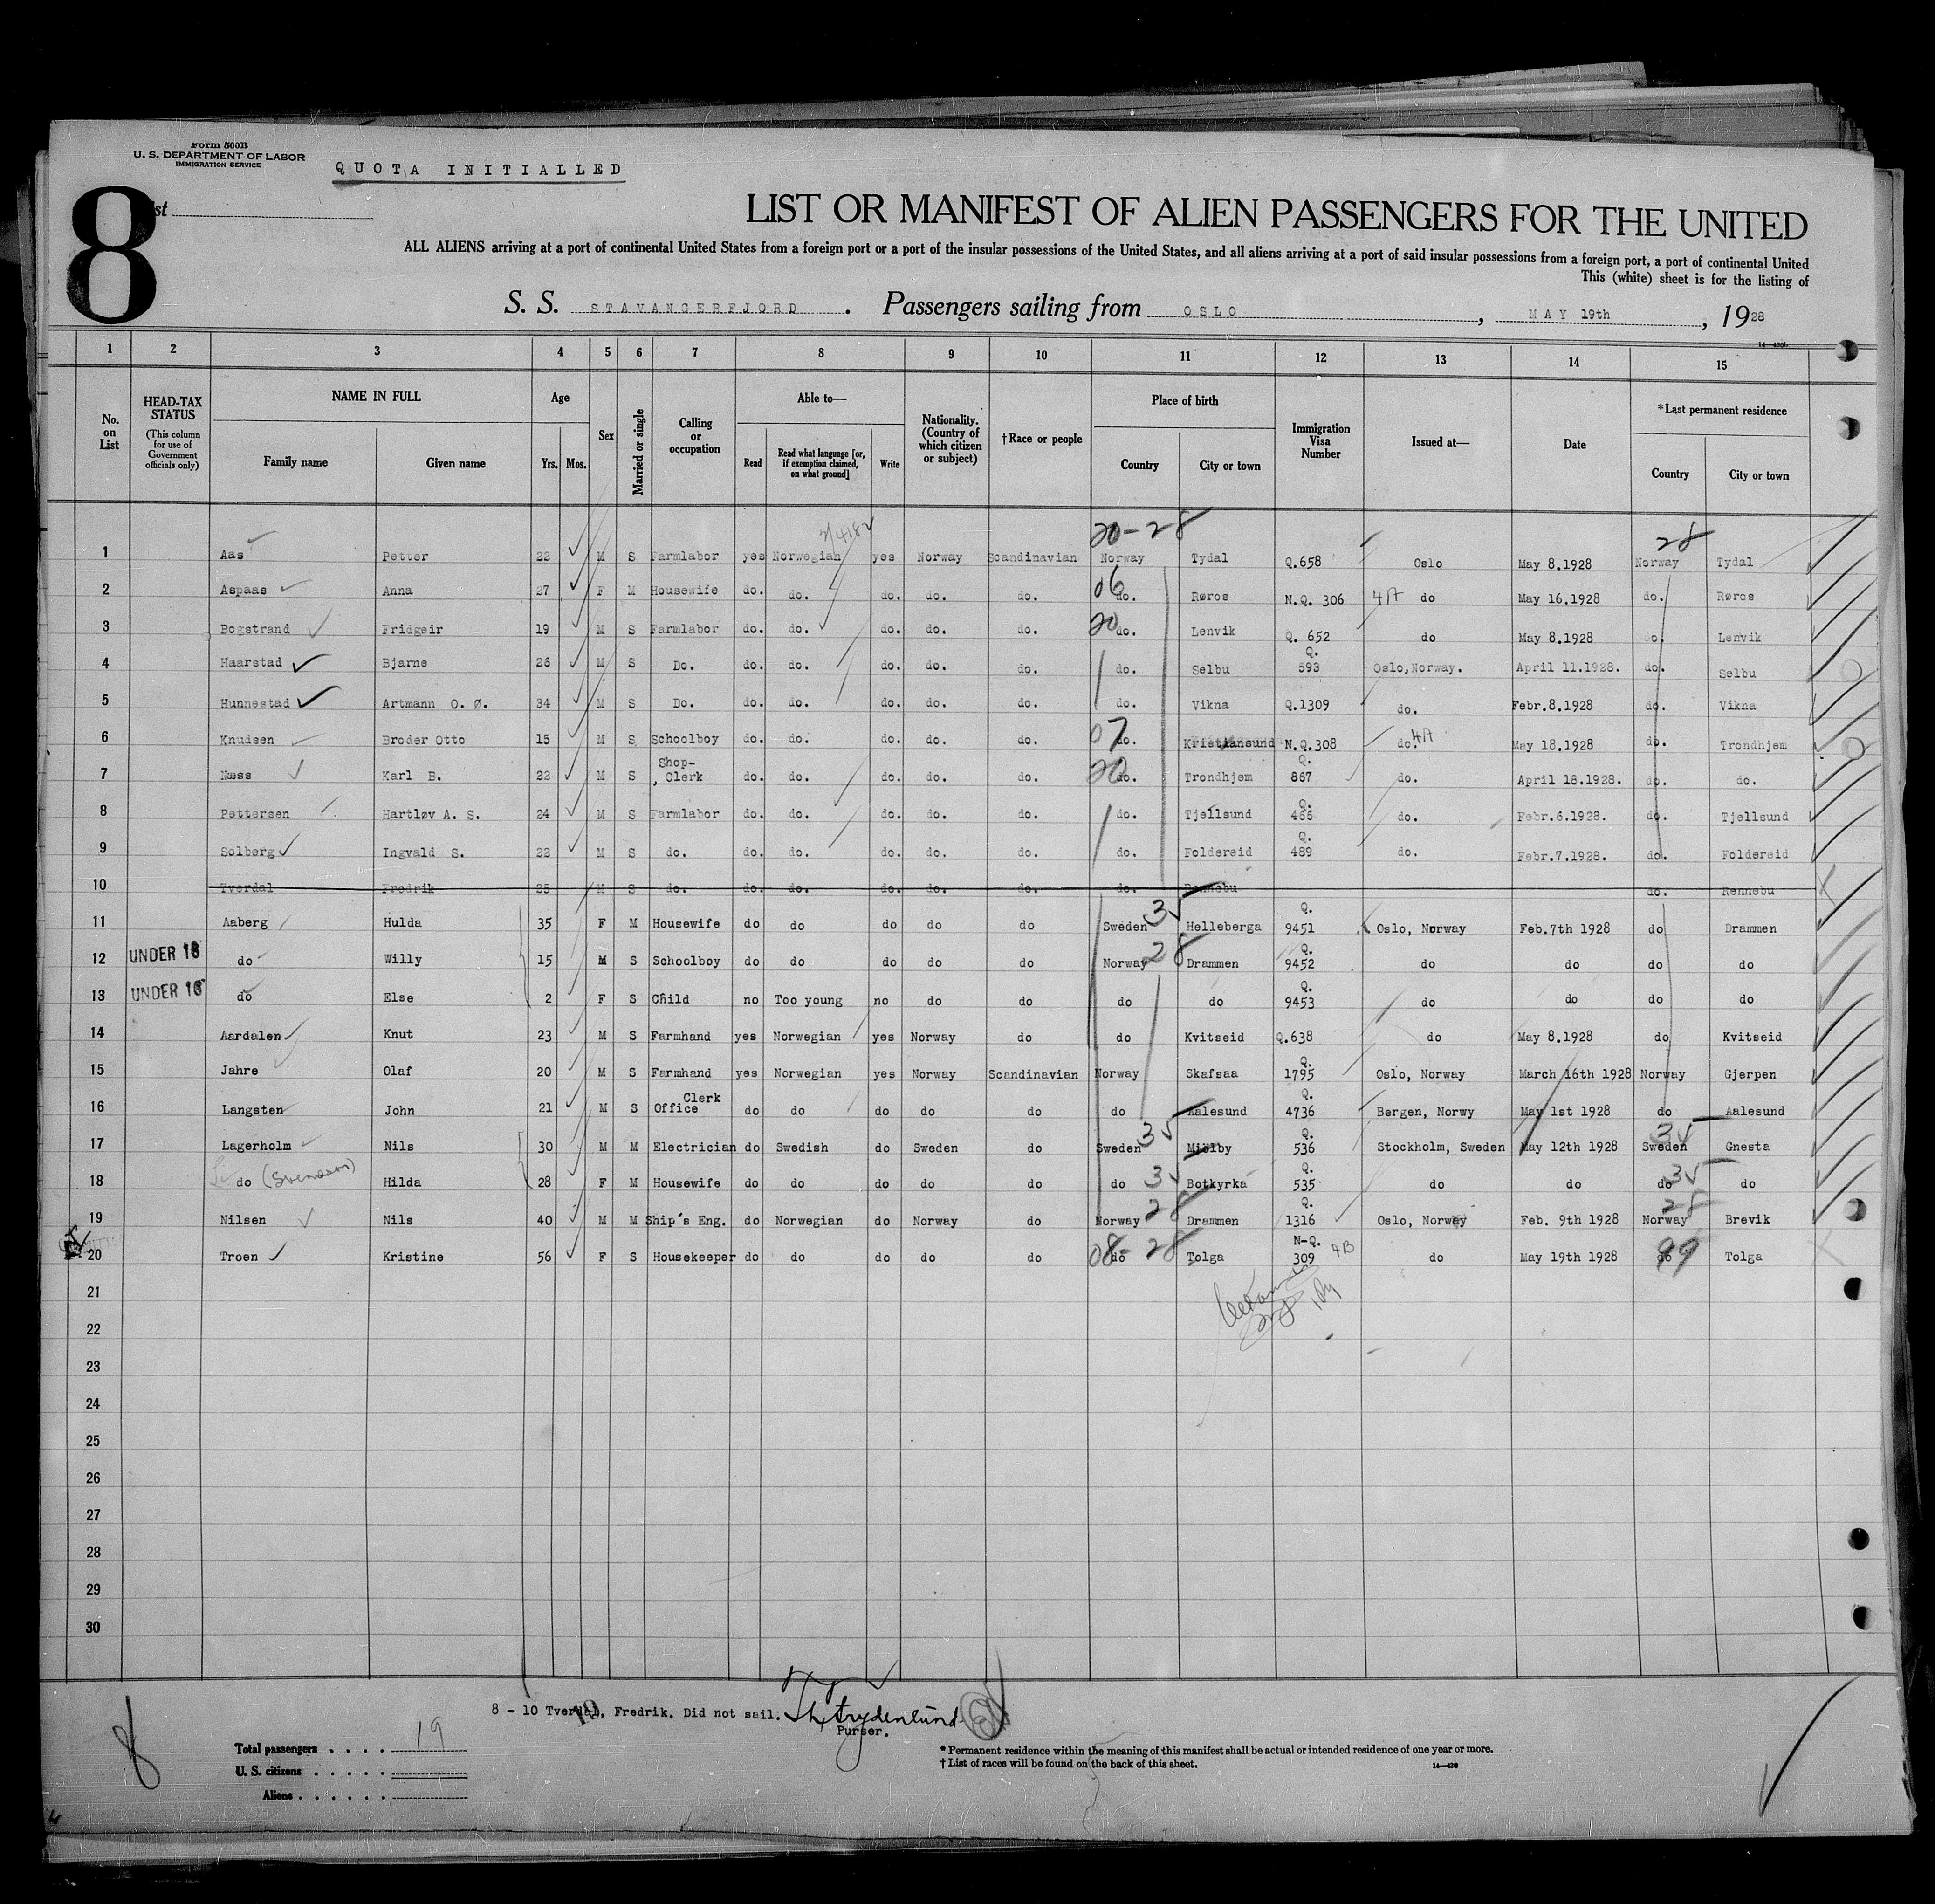 Form 500B
U. S. DEPARTMENT OF LABOR
IMMIGRATION SERVICE
QUOTA INITIALLED
8
LIST OR MANIFEST OF ALIEN PASSENGERS FOR THE UNITED
ALL ALIENS arriving at a port of continental United States from a foreign port or a port of the insular possessions of the United States, and all aliens arriving at a port of said insular possessions from a foreign port, a port of continental United
This (white) sheet is for the listing of
S. S. STAVANGERFJORD. Passengers sailing from OSLO, MAY 19th, 1928
1 2 3 4 5 6 7 8 9 10 11 12 13 14 15
No. on List
HEAD-TAX STATUS (This column for use of Government officials only)
NAME IN FULL Family name Given name
Age Yrs. Mos.
Sex
Married or single
Calling or occupation
Able to— Read Read what language [or, if exemption claimed, on what ground] Write
Nationality. (Country of which citizen or subject)
†Race or people
Place of birth Country City or town
Immigration Visa Number
Issued at—
Date
*Last permanent residence Country City or town
20-28 28
1 Aas Petter 22 M S Farmlabor yes Norwegian yes Norway Scandinavian Norway Tydal Q.658 Oslo May 8.1928 Norway Tydal
2 Aspaas Anna 27 F M Housewife do. do. do. do. do. 06 do. Røros N.Q. 306 4A do May 16.1928 do. Røros
3 Bogstrand Fridgeir 19 M S Farmlabor do. do. do. do. do. 20 do. Lenvik Q. 652 do May 8.1928 do. Lenvik
4 Haarstad Bjarne 26 M S Do. do. do. do. do. do. do. Selbu Q. 593 Oslo,Norway. April 11.1928. do. Selbu
5 Hunnestad Artmann O. Ø. 34 M S Do. do. do. do. do. do. do. Vikna Q.1309 do. Febr.8.1928 do. Vikna
6 Knudsen Broder Otto 15 M S Schoolboy do. do. do. do. do. 07 do. Kristiansund N.Q.308 do. 4A May 18.1928 do. Trondhjem
7 Næss Karl B. 22 M S Shop-Clerk do. do. do. do. do. 20 do. Trondhjem Q. 867 do. April 18.1928. do. do.
8 Pettersen Hartløv A. S. 24 M S Farmlabor do. do. do. do. do. do. Tjellsund Q. 466 do. Febr.6.1928. do. Tjellsund
9 Solberg Ingvald S. 22 M S do. do. do. do. do. do. do. Foldereid Q. 489 do. Febr.7.1928. do. Foldereid
10 Tverdal Fredrik 25 M S do. do. do. do. do. do. do. Rennebu do. Rennebu
11 Aaberg Hulda 35 F M Housewife do do do do do Sweden 35 Helleberga Q. 9451 Oslo, Norway Feb.7th 1928 do Drammen
12 UNDER 16 do Willy 15 M S Schoolboy do do do do do Norway 28 Drammen Q. 9452 do do do do
13 UNDER 16 do Else 2 F S Child no Too young no do do do do Q. 9453 do do do do
14 Aardalen Knut 23 M S Farmhand yes Norwegian yes Norway do do Kvitseid Q.638 do May 8.1928 do Kvitseid
15 Jahre Olaf 20 M S Farmhand yes Norwegian yes Norway Scandinavian Norway Skafsaa Q. 1795 Oslo, Norway March 16th 1928 Norway Gjerpen
16 Langsten John 21 M S Office Clerk do do do do do do Aalesund Q. 4736 Bergen, Norwy May 1st 1928 do Aalesund
17 Lagerholm Nils 30 M M Electrician do Swedish do Sweden do Sweden 35 Mjølby Q. 536 Stockholm, Sweden May 12th 1928 Sweden 35 Gnesta
18 do (Svensson) Hilda 28 F M Housewife do do do do do do 35 Botkyrka Q. 535 do do do 35 do
19 Nilsen Nils 40 M M Ship's Eng. do Norwegian do Norway do Norway 28 Drammen Q. 1316 Oslo, Norway Feb. 9th 1928 Norway 28 Brevik
20 Troen Kristine 56 F S Housekeeper do do do do do 08-28 do Tolga N-Q. 309 4B do May 19th 1928 do 99 Tolga
21
22
23
24
25
26
27
28
29
30
8 - 10 Tverdal, Fredrik. Did not sail.
Purser.
8
Total passengers . . . . 19
U. S. citizens . . . . .
Aliens . . . . . .
* Permanent residence within the meaning of this manifest shall be actual or intended residence of one year or more.
† List of races will be found on the back of this sheet.